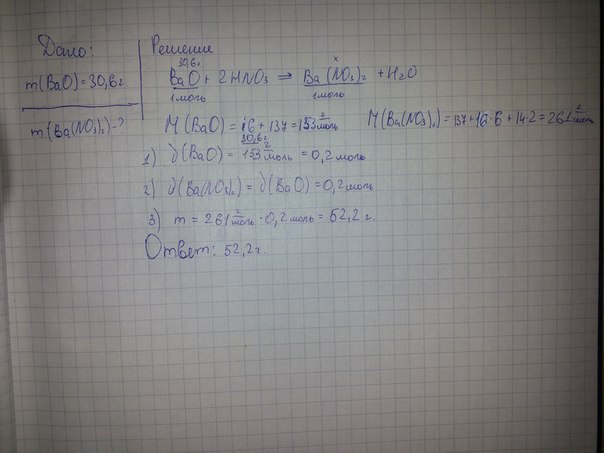 Дано:
m(BaO)=30,6г.
m(Ba(NO₃)₂)-?
Решение
30,6г x
BaO + 2HNO₃ = Ba(NO₃)₂ + H₂O
1моль 1моль
M(BaO) = 16 + 137 = 153 г/моль M(Ba(NO₃)₂) = 137+16·6+14·2=261 г/моль
1) ν(BaO) = 30,6г / 153 г/моль = 0,2моль
2) ν(Ba(NO₃)₂) = ν(BaO) = 0,2моль
3) m = 261 г/моль · 0,2моль = 52,2г.
Ответ: 52,2г.